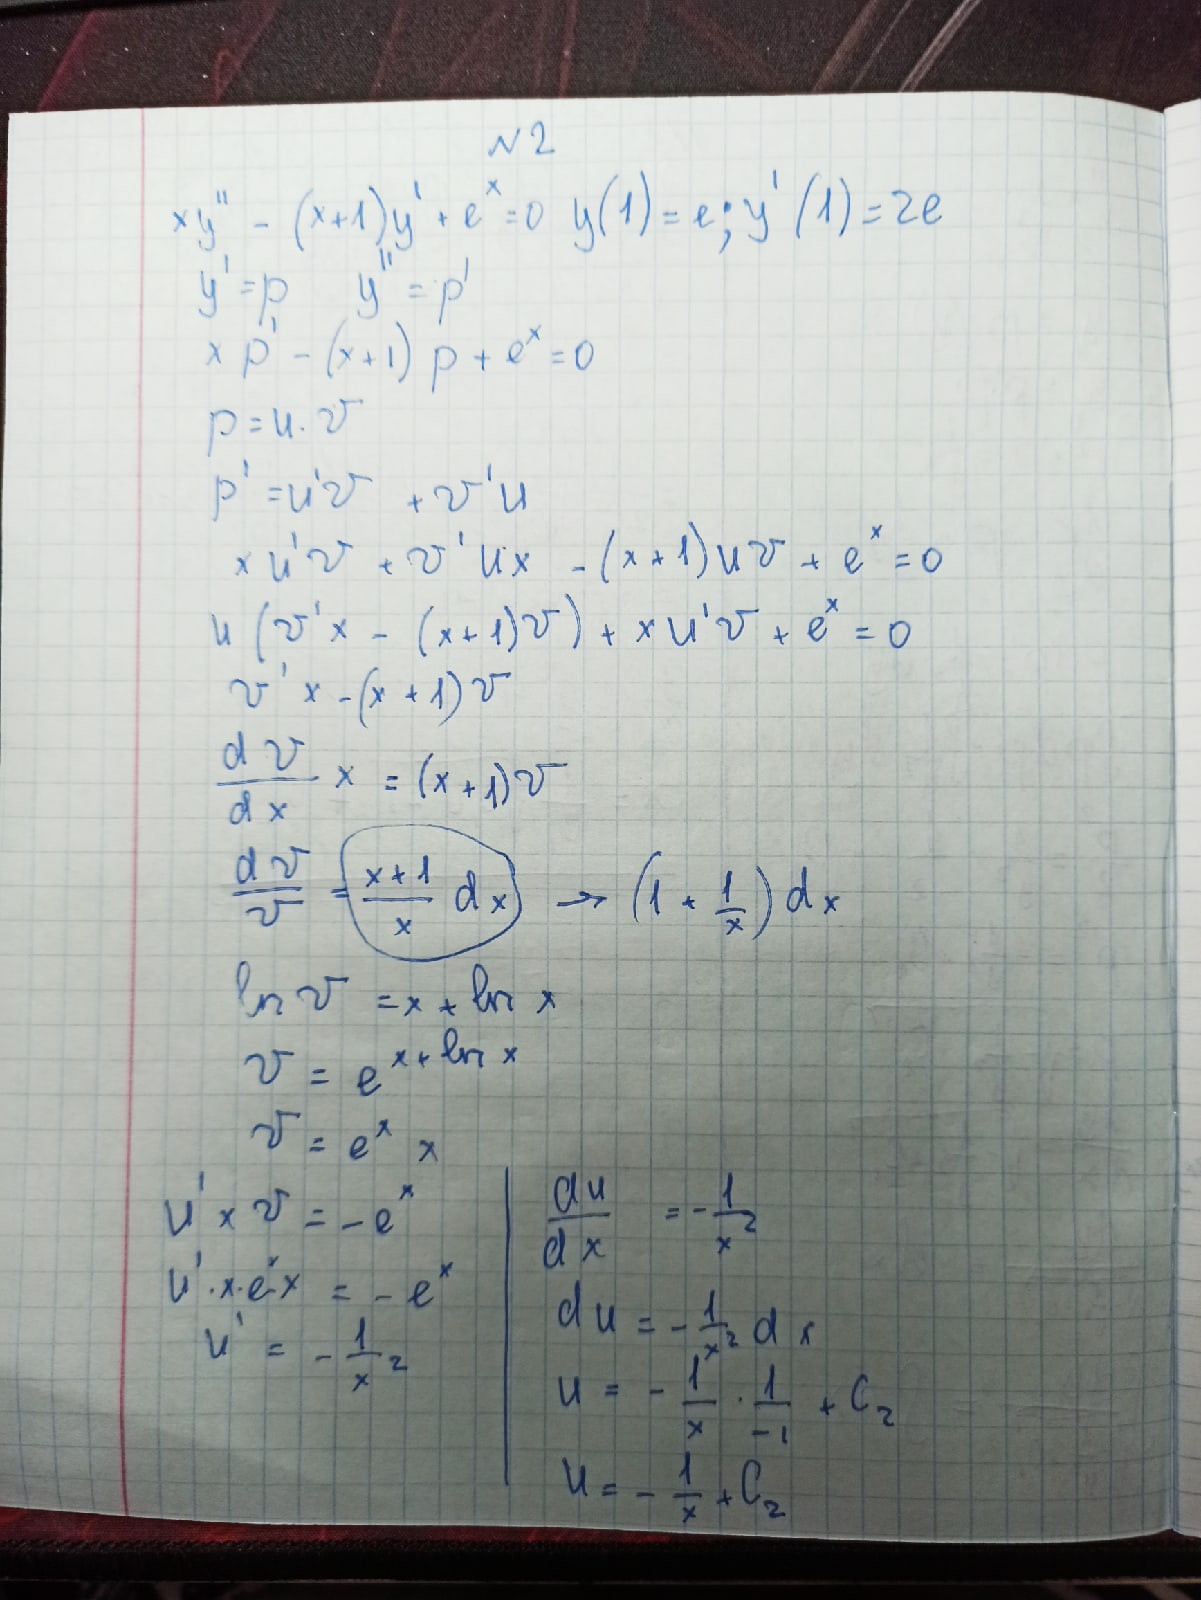 N2
xy'' - (x+1)y' + e^x = 0 y(1) = e; y'(1) = 2e
y' = p y'' = p'
x p' - (x+1) p + e^x = 0
p = u · v
p' = u'v + v'u
x u'v + v'ux - (x+1)uv + e^x = 0
u (v'x - (x+1)v) + x u'v + e^x = 0
v'x - (x+1)v
dv/dx x = (x+1)v
dv/v = (x+1)/x dx → (1 + 1/x) dx
ln v = x + ln x
v = e^(x + ln x)
v = e^x x
u' x v = -e^x
u' · x · e^x x = -e^x
u' = -1/x²
du/dx = -1/x²
du = -1/x² dx
u = -1/x · 1/-1 + C₂
u = -1/x + C₂